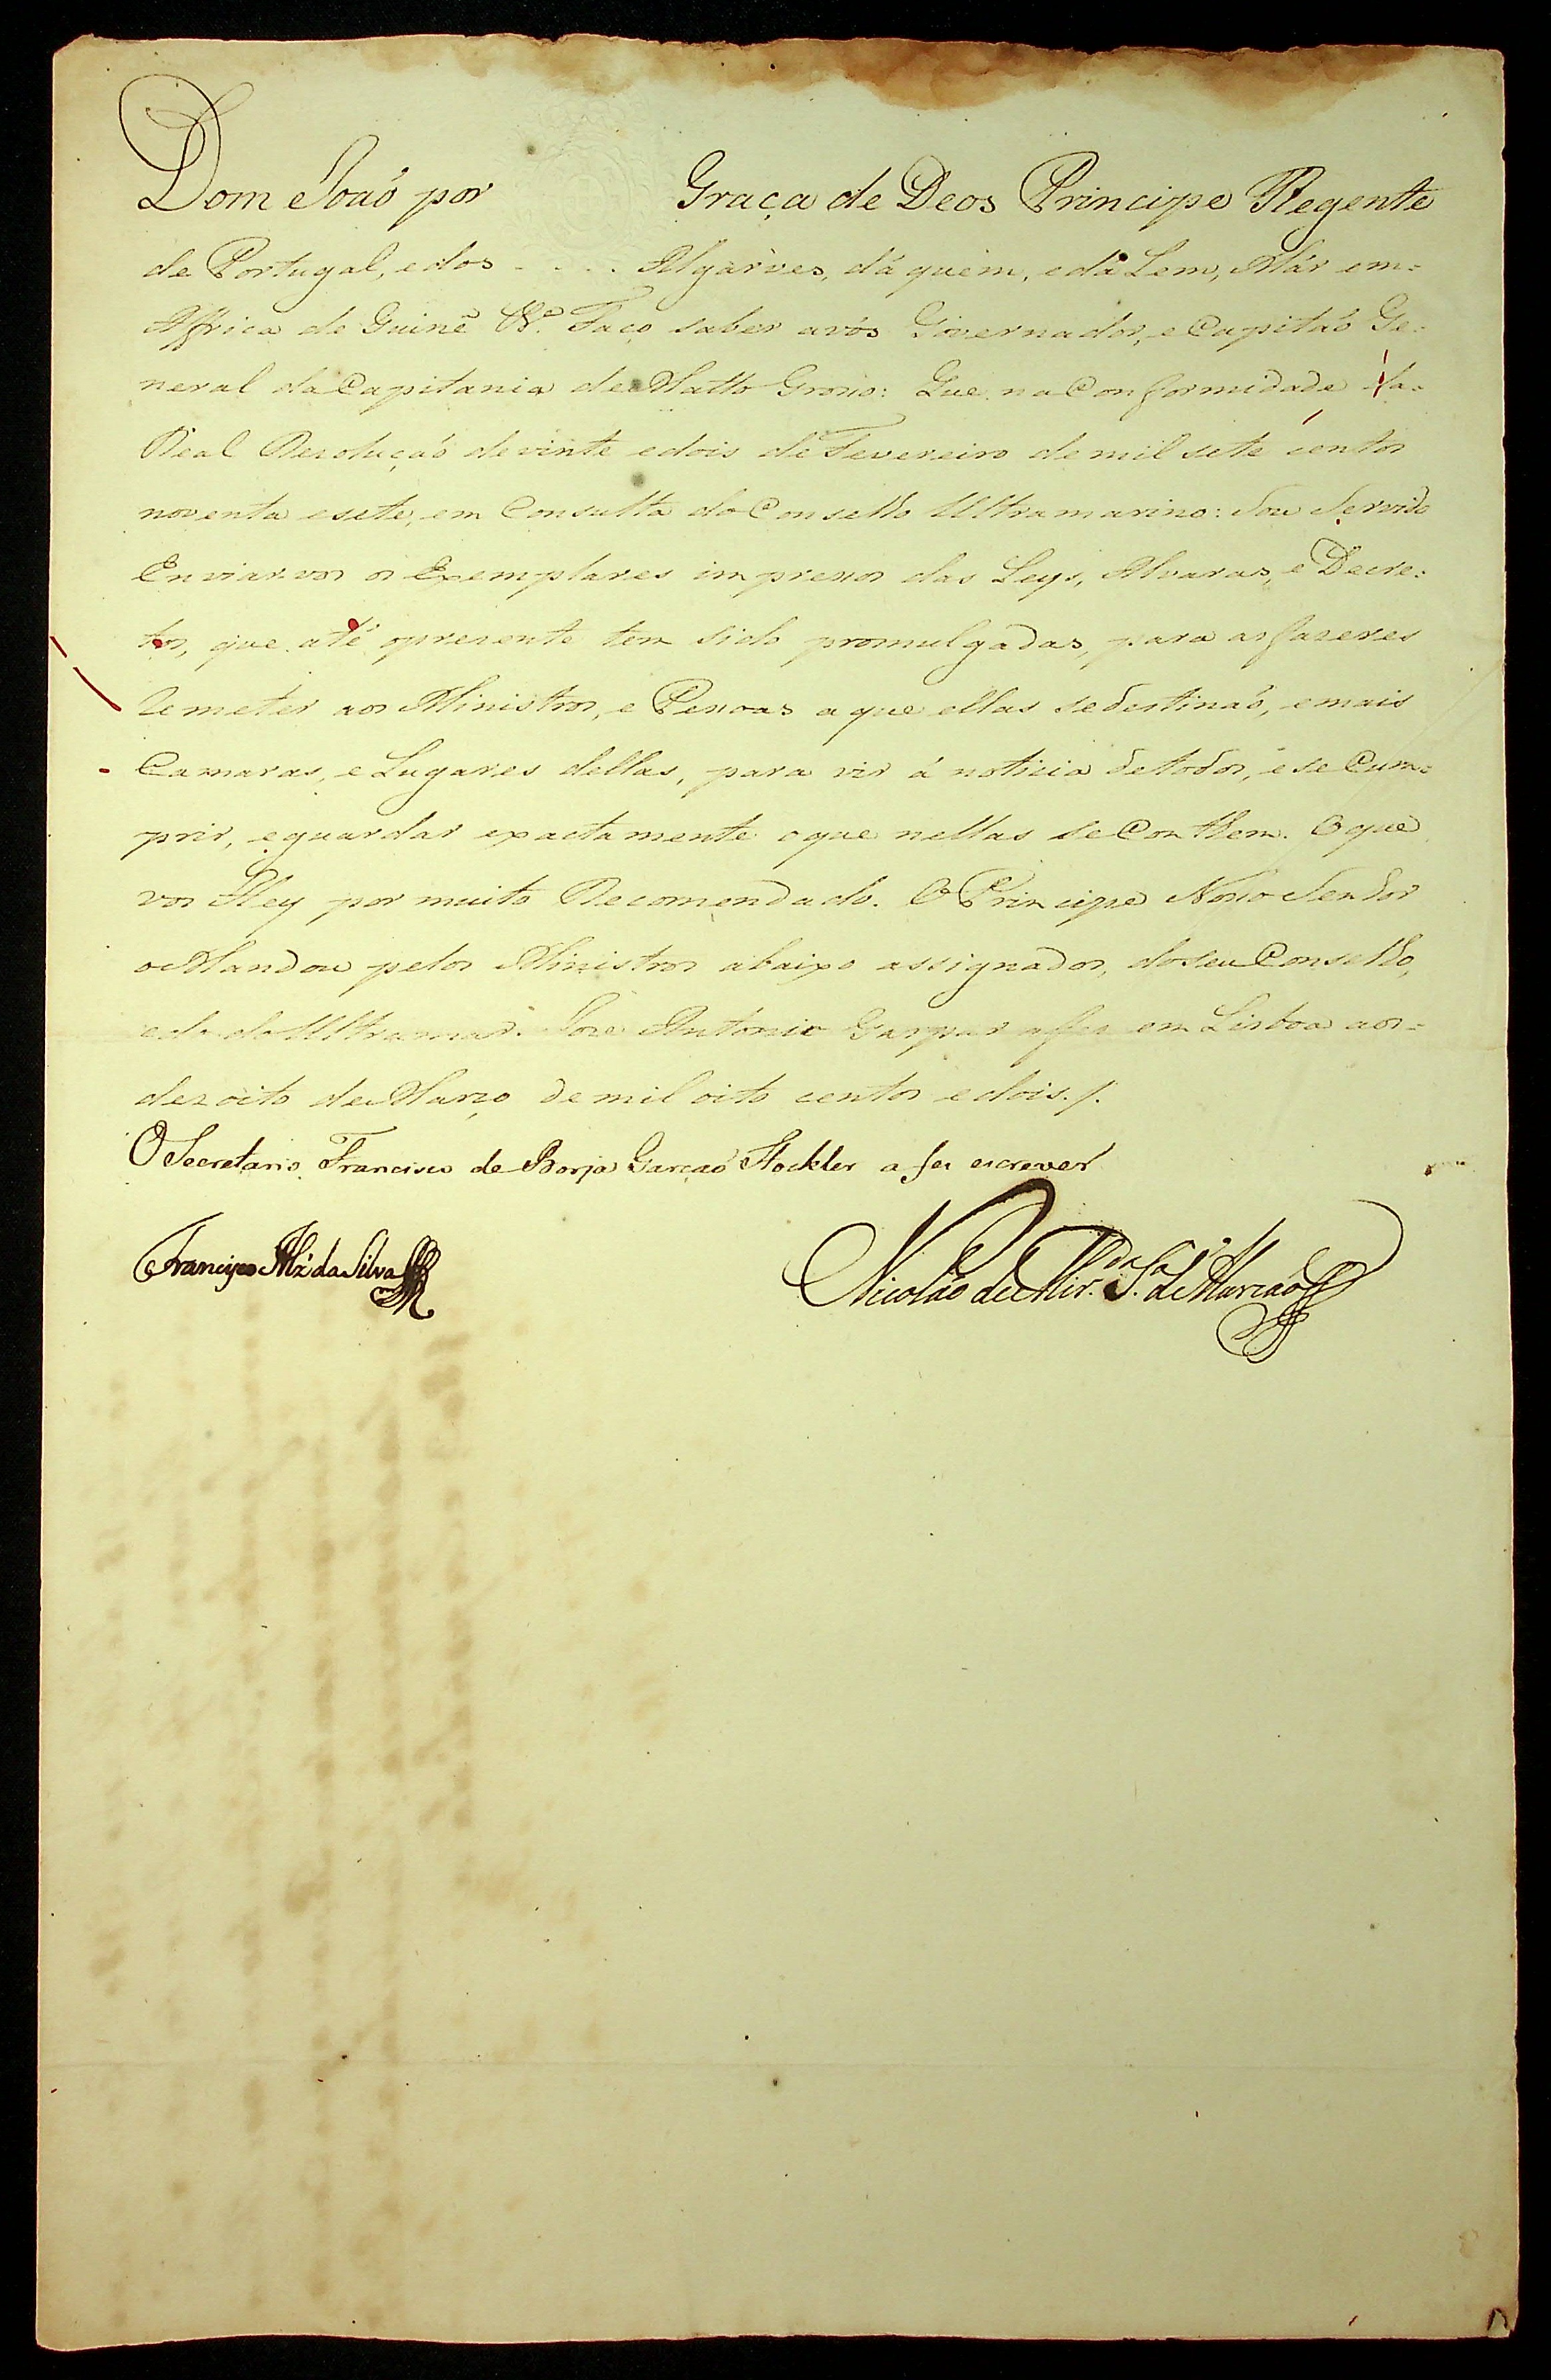 Dom Joaõ por Graça de Deos Principe Regente
de Portugal, e dos . . . . Algarves, dá quem, e dá Lem, Már em=
Affrica de Guiné &.ª Faço saber avós Governador, e Capitaõ Ge=
neral da Capitania de Matto Grosso: Que na Conformidade da=
Real Rezoluçaõ de vinte e dois de Fevereiro de mil sete centos
noventa e sete, em Consulta do Conselho Ultramarino: Sou Servido
Enviarvos os Exemplares impressos das Leys, Alvaras, e Decre=
tos, que até oprezente tem sido promulgadas, para as fazeres
Remeter aos Ministros, e Pessoas aque ellas se destinaõ, e mais
Camaras, e Lugares dellas, para vir á noticia de todos, e se Cum=
prir, e guardar exactamente o que nellas se Conthem. O que
vos Hey por muito Recomendado. O Principe Nosso Senhor
o Mandou pelos Ministros abaixo assignados, do seu Conselho,
e do do Ultramar. Joze Antonio Gaspar afez em Lisboa aos=
dezoito de Março de mil oito centos e dois./.
O Secretario Francisco de Borja Garçaõ Stockler a fez escrever
Francisco Alz' da Silva
Nicoláo de Mir.da S.a de Alarcaõ